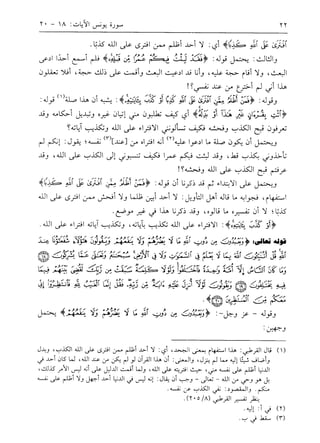 ٢٢ سورة يونس الآيات: ١٨ - ٢٠
افْتَرَى عَلَى اللَّهِ كَذِبًا﴾ أي: لا أحد أظلم ممن افترى على الله كذبًا.
والثالث: يحتمل قوله: ﴿فَقَدْ لَبِثْتُ فِيكُمْ عُمُرًا مِنْ قَبْلِهِ﴾ فلم أسمع أحدًا ادعى
البعث، ولا أقام حجة عليه، وأنا قد ادعيت البعث وأقمت على ذلك حجة، أفلا تعقلون
هذا أني لم أخترع من عند نفسي؟!
وقوله: ﴿فَمَنْ أَظْلَمُ مِمَّنِ افْتَرَى عَلَى اللَّهِ كَذِبًا أَوْ كَذَّبَ بِآيَاتِهِ﴾: يشبه أن هذا صلة قوله:
﴿ائْتِ بِقُرْآنٍ غَيْرِ هَذَا أَوْ بَدِّلْهُ﴾ أي كيف تطلبون مني إتيان غيره وتبديل أحكامه وقد
تعرفون قبح الكذب وفحشه فكيف تسألونني الافتراء على الله وتكذيب آياته؟
ويحتمل أن يكون صلة ما ادعوا عليه(٢) أنه افتراه من [عند](٣) نفسه؛ يقول: إنكم لم
تأخذوني بكذب قط، وقد لبثت فيكم عمرا فكيف تنسبوني إلى الكذب على الله، وقد
عرفتم قبح الكذب على الله وفحشه؟!
ويحتمل على الابتداء ثم قد ذكرنا أن قوله: ﴿فَمَنْ أَظْلَمُ مِمَّنِ افْتَرَى عَلَى اللَّهِ كَذِبًا﴾
استفهام، فجوابه ما قاله أهل التأويل: لا أحد أبين ظلما ولا أفحش ممن افترى على الله
كذبًا؛ لا أن تفسيره ما قالوه، وقد ذكرنا هذا في غير موضع.
﴿أَوْ كَذَّبَ بِآيَاتِهِ﴾: الافتراء على الله تكذيب بآياته، وتكذيب آياته افتراء على الله.
قوله تعالى: ﴿وَيَعْبُدُونَ مِنْ دُونِ اللَّهِ مَا لَا يَضُرُّهُمْ وَلَا يَنْفَعُهُمْ وَيَقُولُونَ هَؤُلَاءِ شُفَعَاؤُنَا عِنْدَ
اللَّهِ قُلْ أَتُنَبِّئُونَ اللَّهَ بِمَا لَا يَعْلَمُ فِي السَّمَاوَاتِ وَلَا فِي الْأَرْضِ سُبْحَانَهُ وَتَعَالَى عَمَّا يُشْرِكُونَ ۝
وَمَا كَانَ النَّاسُ إِلَّا أُمَّةً وَاحِدَةً فَاخْتَلَفُوا وَلَوْلَا كَلِمَةٌ سَبَقَتْ مِنْ رَبِّكَ لَقُضِيَ بَيْنَهُمْ فِيمَا
فِيهِ يَخْتَلِفُونَ ۝ وَيَقُولُونَ لَوْلَا أُنْزِلَ عَلَيْهِ آيَةٌ مِنْ رَبِّهِ فَقُلْ إِنَّمَا الْغَيْبُ لِلَّهِ فَانْتَظِرُوا إِنِّي
مَعَكُمْ مِنَ الْمُنْتَظِرِينَ ۝﴾.
وقوله - عز وجل-: ﴿وَيَعْبُدُونَ مِنْ دُونِ اللَّهِ مَا لَا يَضُرُّهُمْ وَلَا يَنْفَعُهُمْ﴾ يحتمل
وجهين:
(١) قال القرطبي: هذا استفهام بمعنى الجحد، أي: لا أحد أظلم ممن افترى على الله الكذب، وبدل
وأضاف شيئًا إليه مما لم ينزل، والمعنى: أن هذا القرآن لو لم يكن من عند الله، لما كان أحد في
الدنيا أظلم على نفسه مني، حيث افتريته على الله، ولما أقمت الدليل على أنه ليس الأمر كذلك،
بل هو وحي من الله - تعالى - وجب أن يقال: إنه ليس في الدنيا أحد أجهل ولا أظلم على نفسه
منكم. والمقصود: نفي الكذب عن نفسه.
ينظر تفسير القرطبي (٨/ ٢٠٥).
(٢) في أ: إليه.
(٣) سقط في ب.